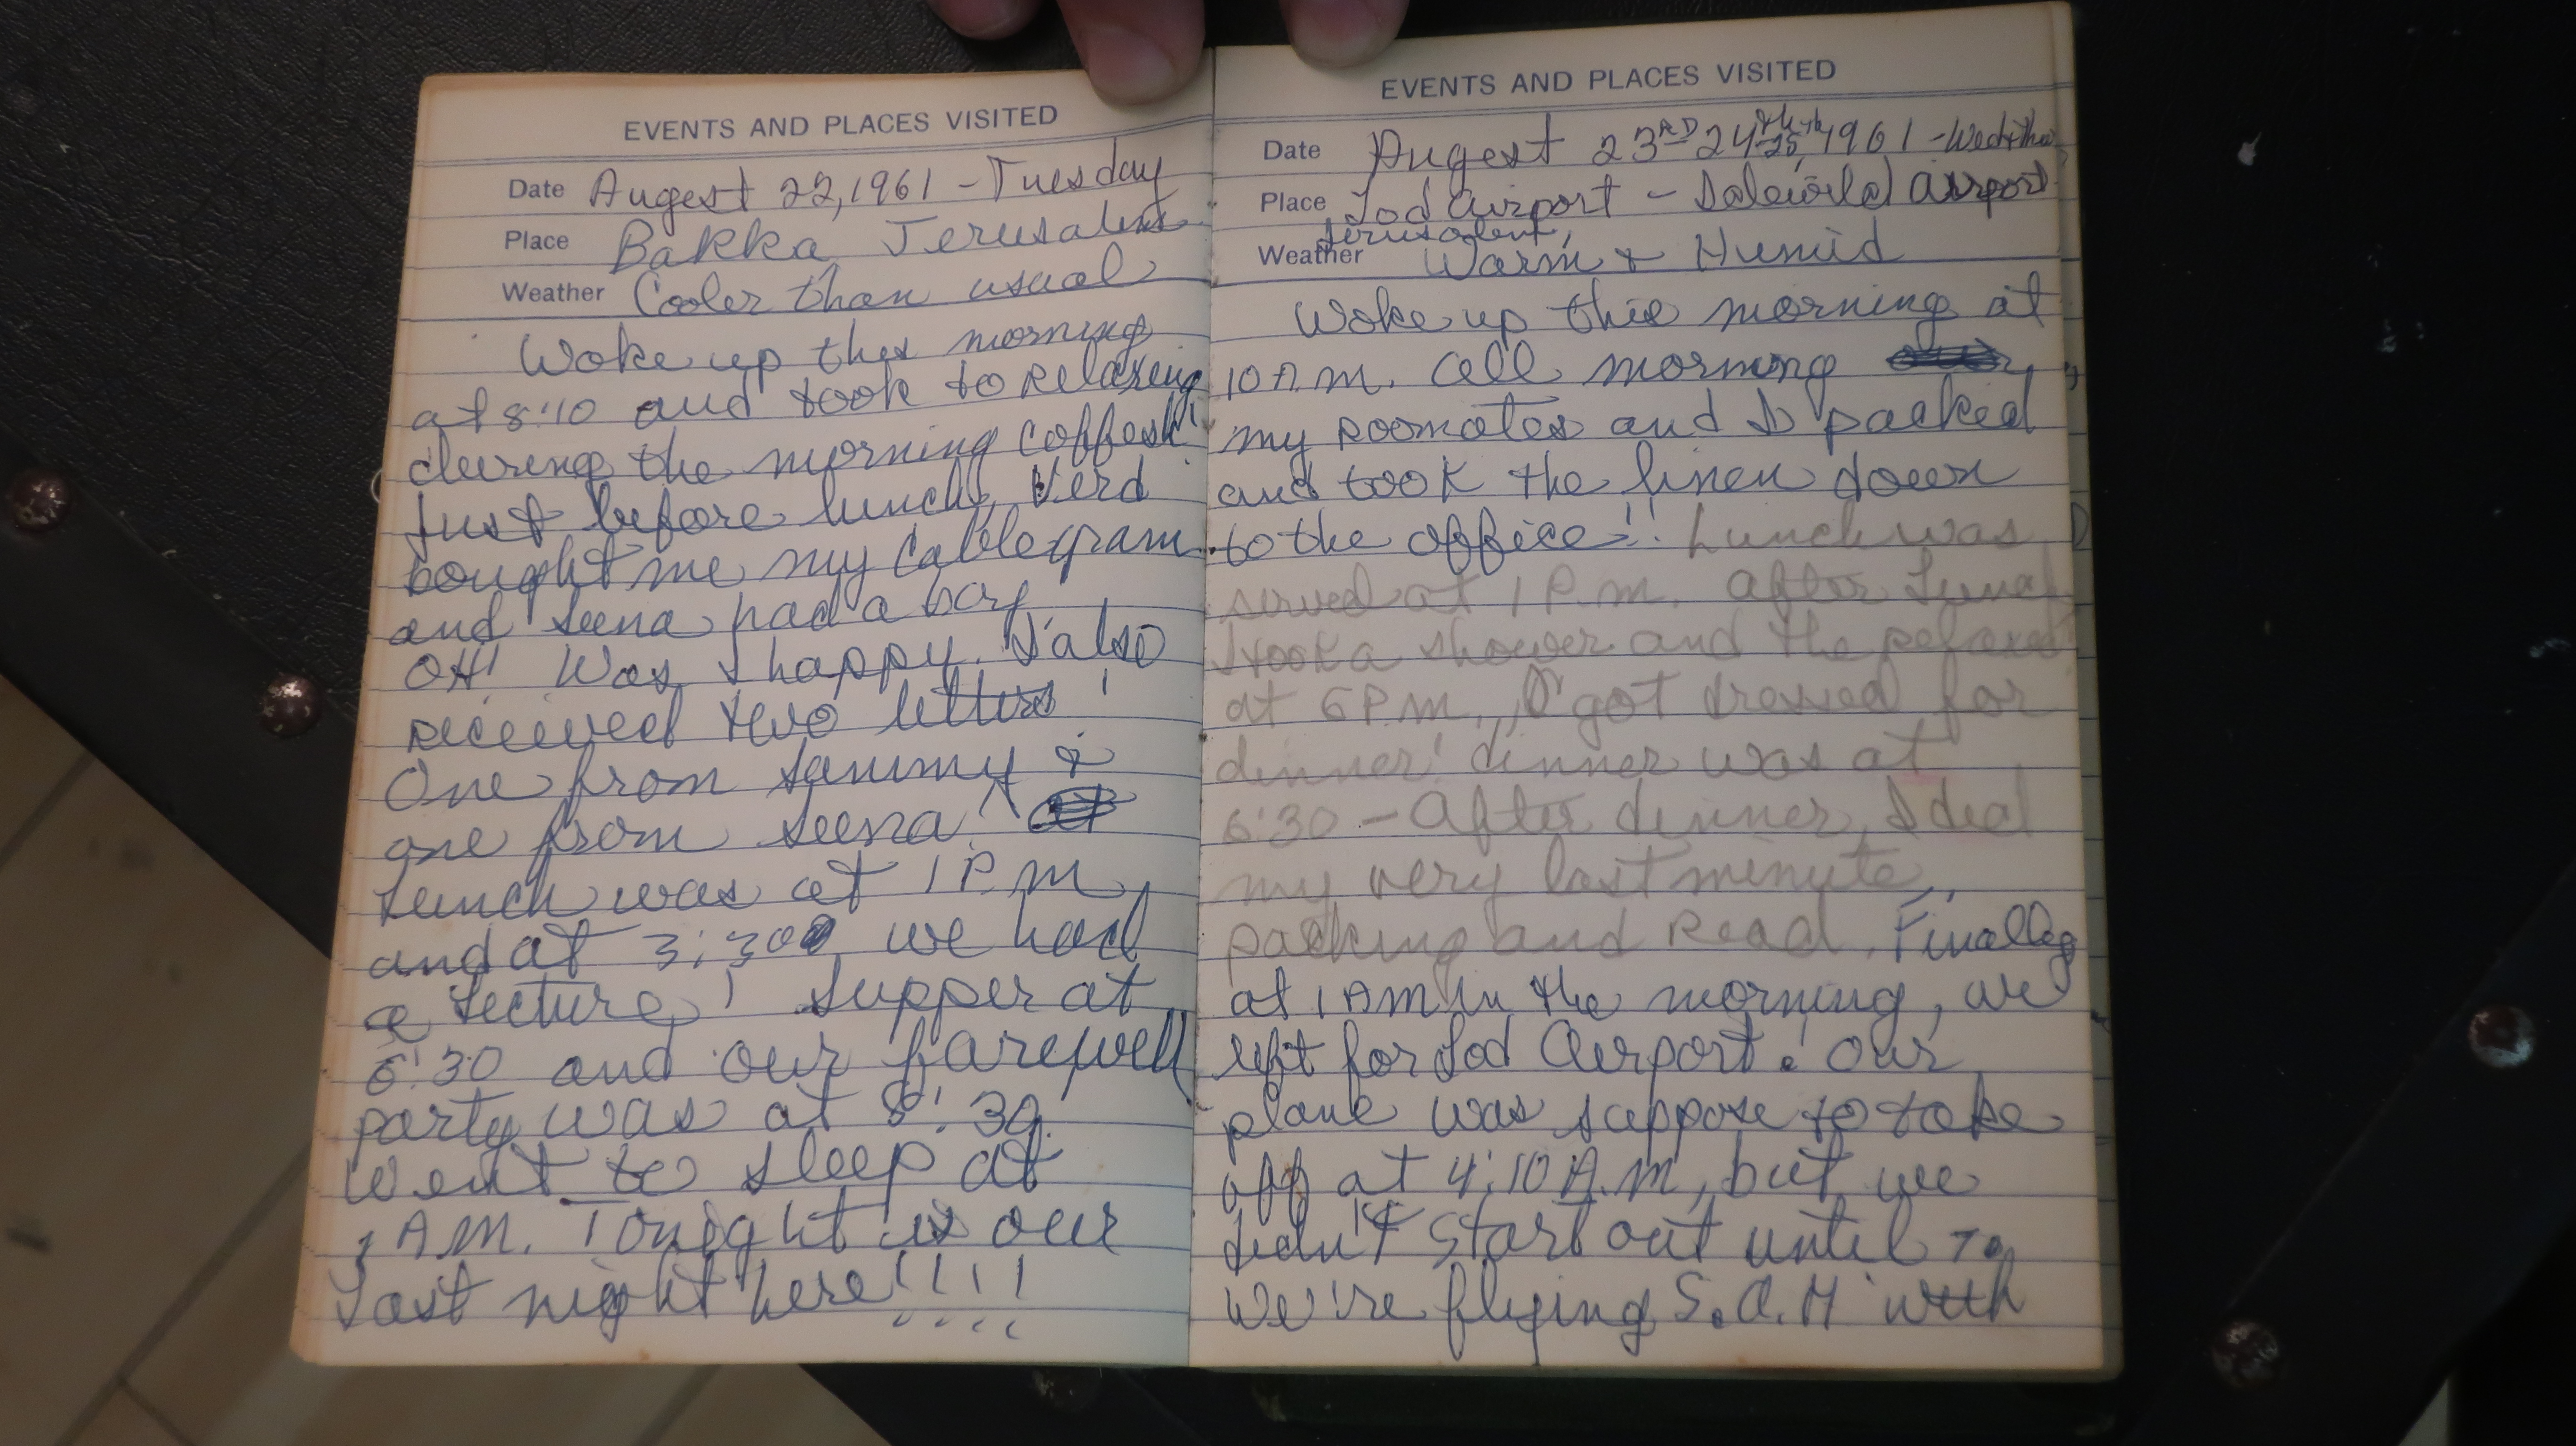 EVENTS AND PLACES VISITED
Date Augest 22, 1961 - Tuesday
Place Bakka, Jerusalem
Weather Cooler than usual
Woke up this morning
at 8:10 and took to relaxing
during the morning
Just before lunch, Verd
bought me my cablegram
and Seena had a boy
OH! Was I happy. I also
received two letters!
One from Sammy &
one from Seena!
Lunch was at 1 P.M
and at 3:30 we had
a Lecture! Supper at
6:30 and our farewell
party was at 8:30.
Went to sleep at
1 AM. Tonight is our
Last night here!!!!
EVENTS AND PLACES VISITED
Date Augest 23RD 24th 25th, 1961 - Wed + Thu
Place Lod Airport - Airport
Jerusalem,
Weather Warm & Humid
Woke up this morning at
10 A.M. All morning
my roomates and I packed
and took the linen down
to the office!! Lunch was
served at 1 P.M. After Lunch
I took a shower and the relaxed
at 6 P.M., I got dressed for
dinner! dinner was at
6:30 - After dinner, I did
my very last minute
packing and Read. Finally
at 1 AM in the morning, we
left for Lod Airport. Our
plane was suppose to take
off at 4:10 A.M, but we
didn't start out until 7.
We're flying S.A.H with